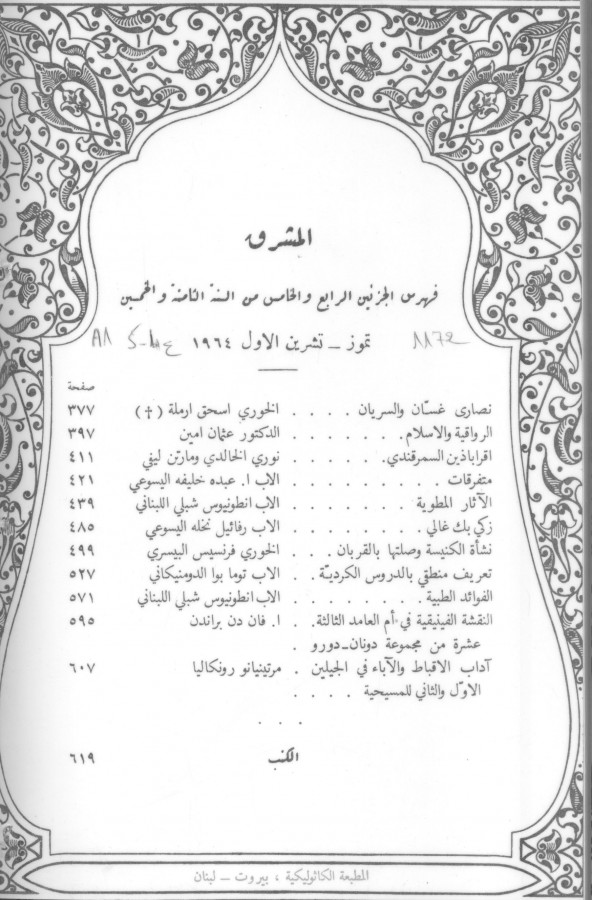 المشرق
فهرس الجزئين الرابع والخامس من السنة الثامنة والخمسين
تموز – تشرين الاول ١٩٦٤
صفحة
نصارى غسّان والسريان . . . . الخوري اسحق ارملة (†) ٣٧٧
الرواقية والاسلام . . . . . . . الدكتور عثمان امين ٣٩٧
اقراباذين السمرقندي . . . . . نوري الخالدي ومارتن ليفي ٤١١
متفرقات . . . . . . . . . الاب ا. عبده خليفه اليسوعي ٤٢١
الآثار المطوية . . . . . . . الاب انطونيوس شبلي اللبناني ٤٣٩
زكي بك غالي . . . . . . . الاب رفائيل نخله اليسوعي ٤٨٥
نشأة الكنيسة وصلتها بالقربان . . . الخوري فرنسيس البيسري ٤٩٩
تعريف منطقي بالدروس الكرديّة . . الاب توما بوا الدومنيكاني ٥٢٧
الفوائد الطبية . . . . . . . الاب انطونيوس شبلي اللبناني ٥٧١
النقشة الفينيقية في أم العامد الثالثة . . ا. فان دن براندن ٥٩٥
عشرة من مجموعة دونان–دورو .
آداب الاقباط والآباء في الجيلين . مرتينيانو رونكاليا ٦٠٧
الاوّل والثاني للمسيحية . . . .
. . .
الكتب ٦١٩
المطبعة الكاثوليكية ، بيروت – لبنان